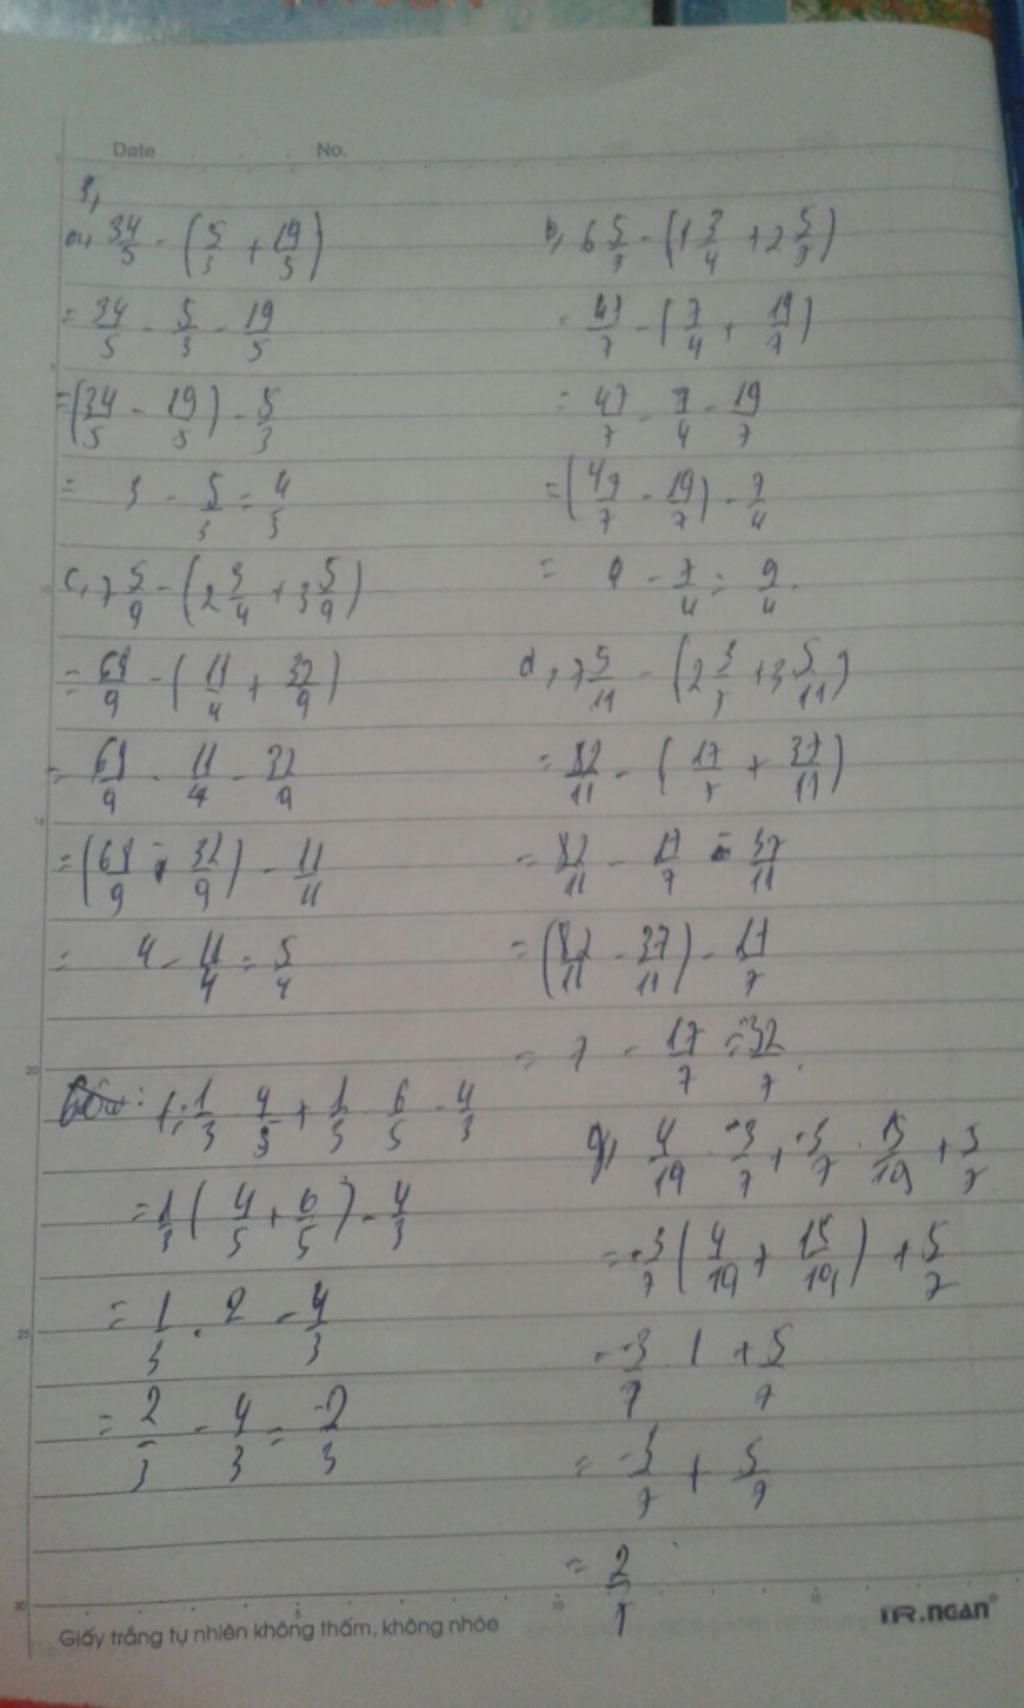 Date No.
3,
a, 34/5 - (5/3 + 19/5)
= 34/5 - 5/3 - 19/5
= (34/5 - 19/5) - 5/3
= 3 - 5/3 = 4/3
c, 7 5/9 - (2 3/4 + 3 5/9)
= 68/9 - (11/4 + 32/9)
= 68/9 - 11/4 - 32/9
= (68/9 - 32/9) - 11/4
= 4 - 11/4 = 5/4
b, 6 5/7 - (1 3/4 + 2 5/7)
= 47/7 - (7/4 + 19/7)
= 47/7 - 7/4 - 19/7
= (47/7 - 19/7) - 7/4
= 4 - 7/4 = 9/4
d, 7 5/11 - (2 3/7 + 3 5/11)
= 82/11 - (17/7 + 37/11)
= 82/11 - 17/7 - 37/11
= (82/11 - 37/11) - 17/7
= 7 - 17/7 = 32/7
f, 1/3 . 4/5 + 1/3 . 6/5 - 4/3
= 1/3 (4/5 + 6/5) - 4/3
= 1/3 . 2 - 4/3
= 2/3 - 4/3 = -2/3
g, 4/19 . -3/7 + -3/7 . 15/19 + 5/7
= -3/7 (4/19 + 15/19) + 5/7
= -3/7 . 1 + 5/7
= -3/7 + 5/7
= 2/7
Giấy trắng tự nhiên không thấm, không nhòe
TR.NGAN